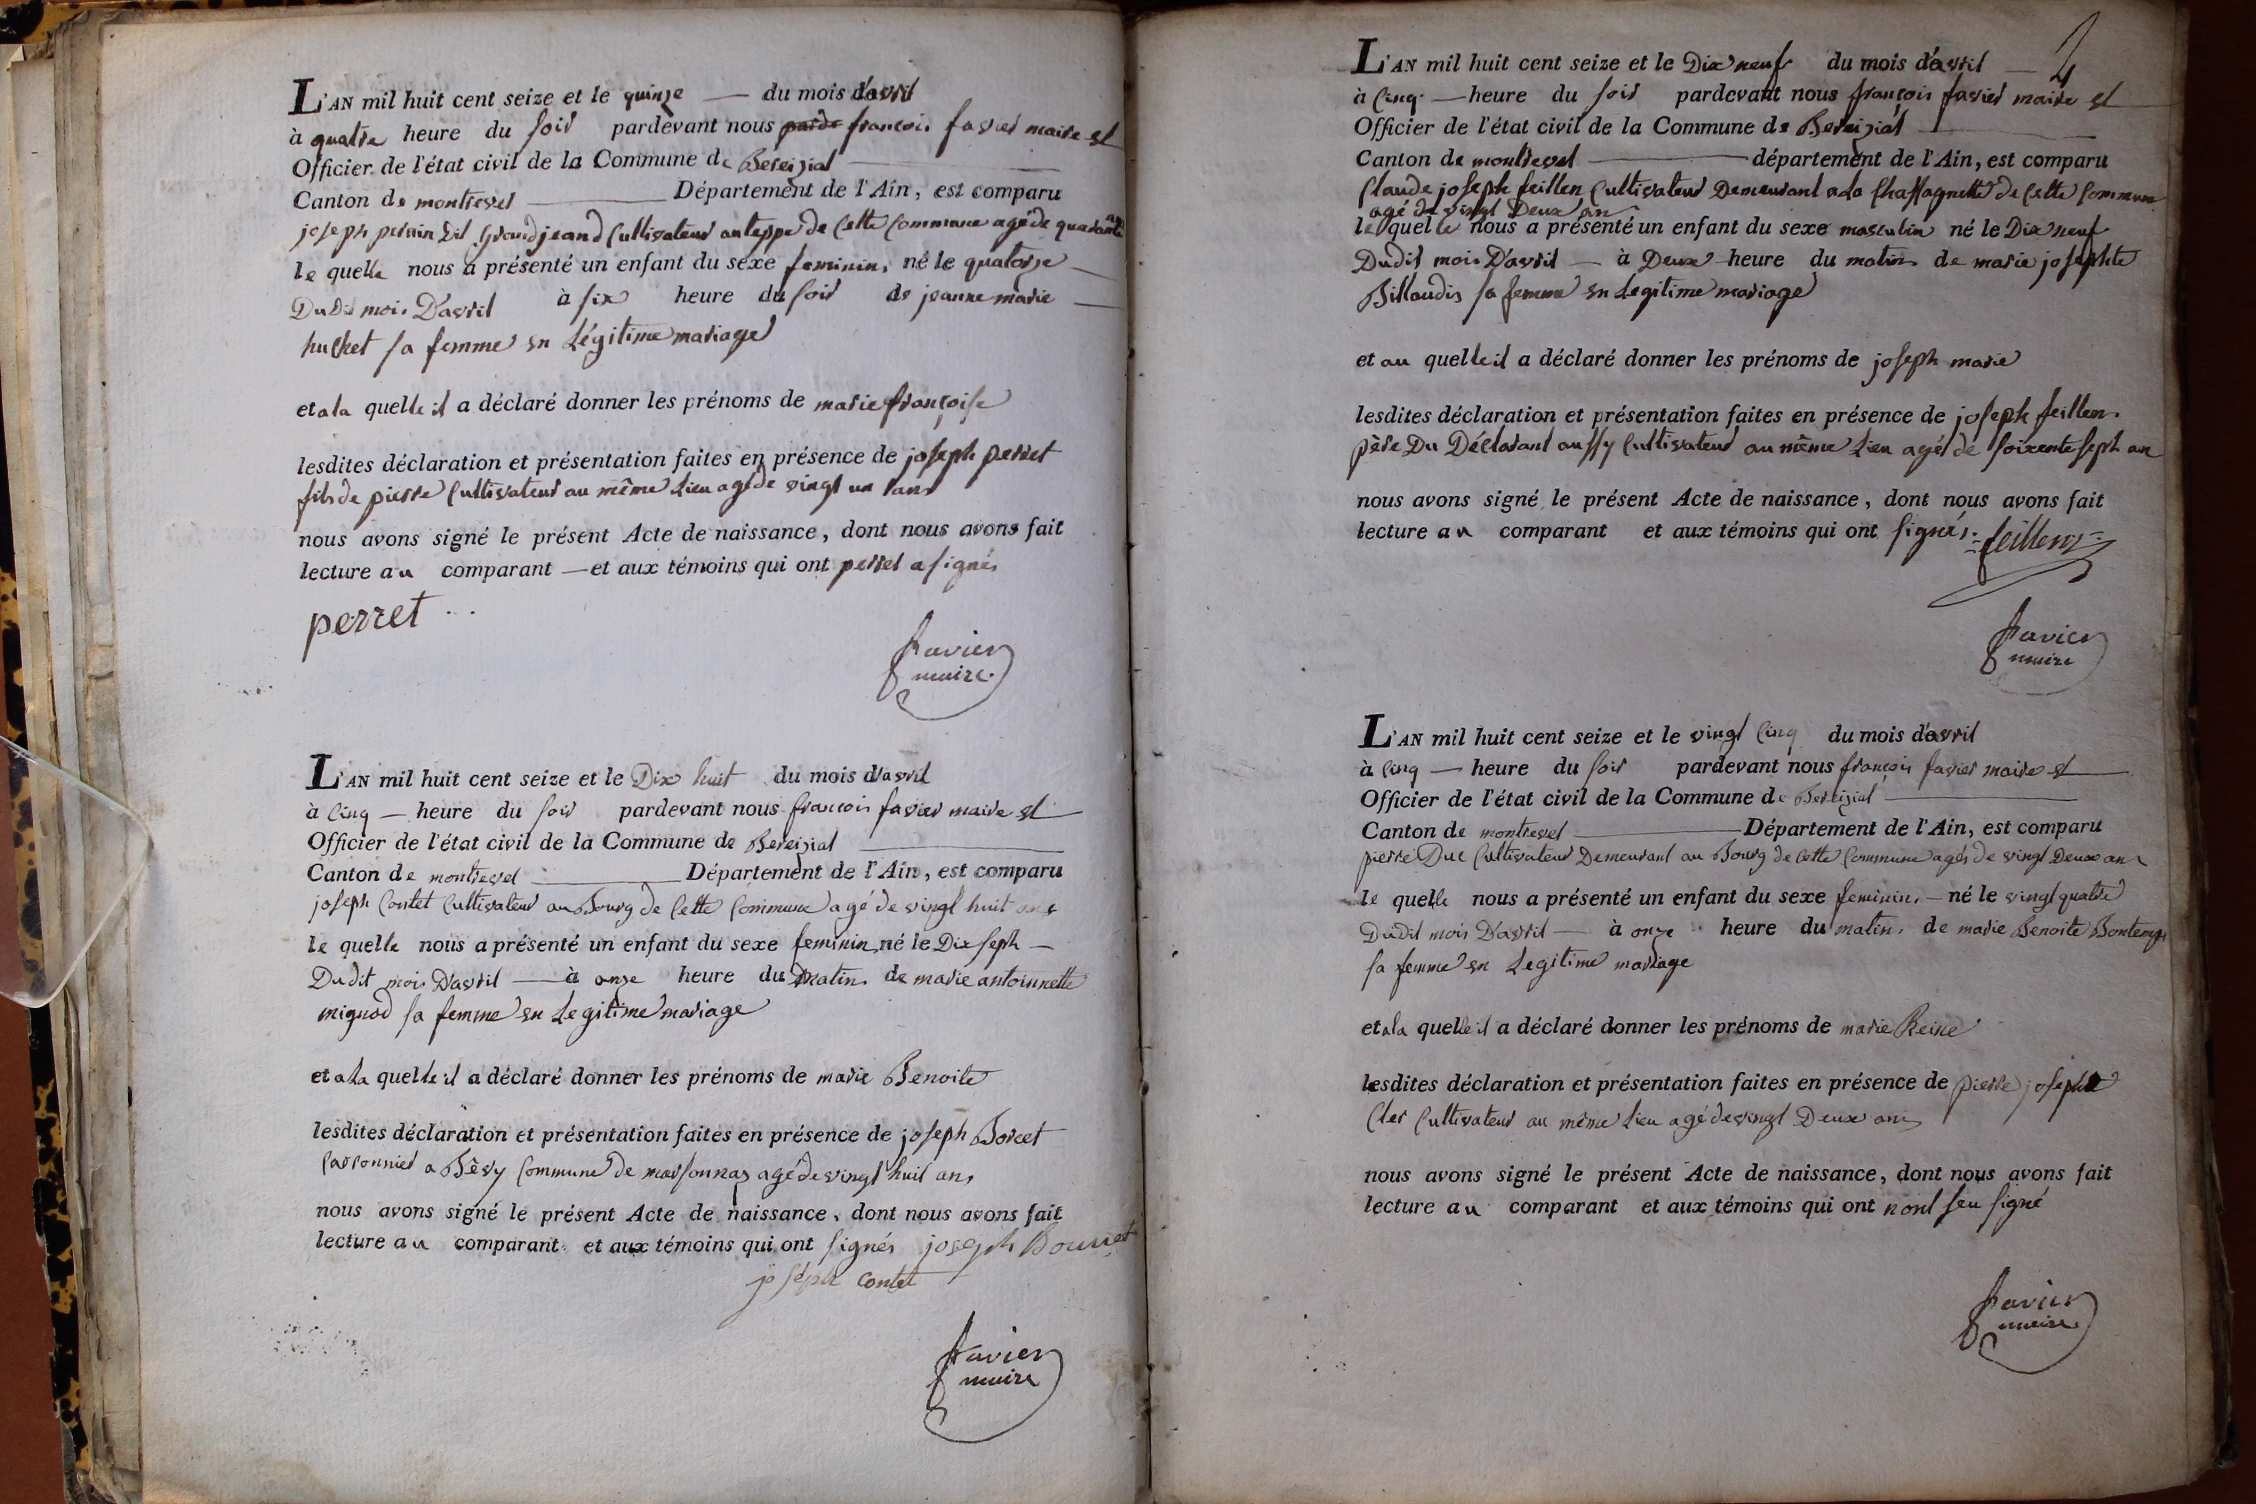 L'AN mil huit cent seize et le quinze du mois d'avril
à quatre heure du soir pardevant nous françois favier maire et
Officier de l'état civil de la Commune de Bereizial
Canton de montrevel Département de l'Ain, est comparu
joseph perrin dit Grandjeand Cultivateur auteppe de Cette Commune agé de quarante ans
le quelle nous a présenté un enfant du sexe feminin, né le quatorze
Dudit mois D'avril à six heure du soir de jeanne marie
huchet sa femme en Légitime mariage
et ala quelle il a déclaré donner les prénoms de marie françoise
lesdites déclaration et présentation faites en présence de joseph perret
fils de pierre Cultivateur au même Lieu agé de vingt un ans
nous avons signé le présent Acte de naissance, dont nous avons fait
lecture au comparant et aux témoins qui ont perret a signés
perret
favier
maire.
L'AN mil huit cent seize et le Dix huit du mois d'avril
à Cinq heure du soir pardevant nous françois favier maire et
Officier de l'état civil de la Commune de Bereizial
Canton de montrevel Département de l'Ain, est comparu
joseph Contet Cultivateur au Bourg de Cette Commune agé de vingt huit ans
le quelle nous a présenté un enfant du sexe feminin, né le Dix seph
Dudit mois D'avril à onze heure du matin de marie antoinnette
mignod sa femme en Legitime mariage
et ala quelle il a déclaré donner les prénoms de marie Benoite
lesdites déclaration et présentation faites en présence de joseph Borcet
Carronnier a Bévy Commune de marsonnas agé de vingt huit ans
nous avons signé le présent Acte de naissance, dont nous avons fait
lecture au comparant et aux témoins qui ont signés joseph
joséph contet
favier
maire
2
L'AN mil huit cent seize et le Dix neuf du mois d'avril
à Cinq heure du soir pardevant nous françois favier maire et
Officier de l'état civil de la Commune de Bereizial
Canton de montrevel département de l'Ain, est comparu
Claude joseph feillen Cultivateur Demeurant ala Chassagnette de Cette Commune
agé de vingt Deux an
le quelle nous a présenté un enfant du sexe masculin né le Dix neuf
Dudit mois D'avril à Deux heure du matin de marie josephte
Billaudis sa femme en Legitime mariage
et au quelle il a déclaré donner les prénoms de joseph marie
lesdites déclaration et présentation faites en présence de joseph feillen
père Du Déclarant aussy Cultivateur au même Lieu agé de soixente seph an
nous avons signé le présent Acte de naissance, dont nous avons fait
lecture au comparant et aux témoins qui ont signés. feillens
favier
maire
L'AN mil huit cent seize et le vingt Cinq du mois d'avril
à Cinq heure du soir pardevant nous françois favier maire et
Officier de l'état civil de la Commune de Bereizial
Canton de montrevel Département de l'Ain, est comparu
pierre Duc Cultivateur Demeurant au Bourg de Cette Commune agés de vingt Deux ans
le quelle nous a présenté un enfant du sexe feminin, né le vingt quatre
Dudit mois D'avril à onze heure du matin de marie Benoite Bontemps
sa femme en Legitime mariage
et ala quelle il a déclaré donner les prénoms de marie Reine
lesdites déclaration et présentation faites en présence de pierre josephte
Cler Cultivateur au même Lieu agé de vingt Deux ans
nous avons signé le présent Acte de naissance, dont nous avons fait
lecture au comparant et aux témoins qui ont nont seu signé
favier
maire